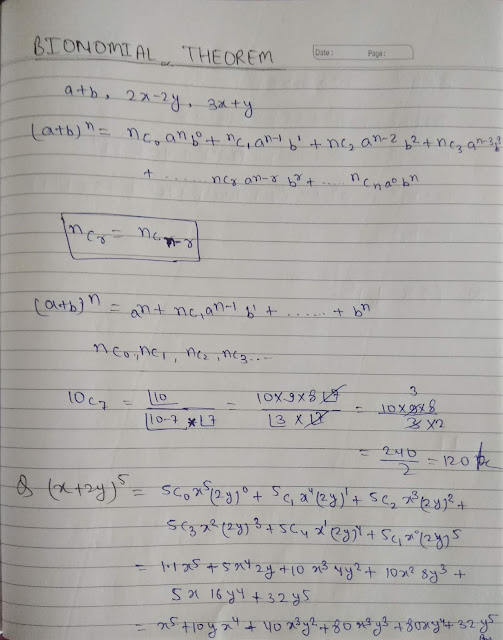 BIONOMIAL THEOREM
Date: Page:
a+b, 2x-2y, 3x+y
(a+b)ⁿ = nC₀ aⁿb⁰ + nC₁ aⁿ⁻¹ b¹ + nC₂ aⁿ⁻² b² + nC₃ aⁿ⁻³b³
+ ...... nCr aⁿ⁻ʳ bʳ + ..... nCn a⁰ bⁿ
nCr = nCn-r
(a+b)ⁿ = aⁿ + nC₁ aⁿ⁻¹ b¹ + ...... + bⁿ
nC₀, nC₁, nC₂, nC₃...
10C₇ = |10 / |10-7 × |7 = 10×9×8 |7 / |3 × |7 = 10×9×8 / 3×2 3
= 240 / 2 = 120
Q (x+2y)⁵ = 5C₀ x⁵(2y)⁰ + 5C₁ x⁴(2y)¹ + 5C₂ x³(2y)² +
5C₃ x²(2y)³ + 5C₄ x¹(2y)⁴ + 5C₁ x⁰(2y)5
= 1·1x5 + 5x⁴ 2y + 10 x³ 4y² + 10x² 8y³ +
5x 16y⁴ + 32y5
= x5 + 10y x⁴ + 40x³y² + 80x²y³ + 80xy⁴ + 32y5